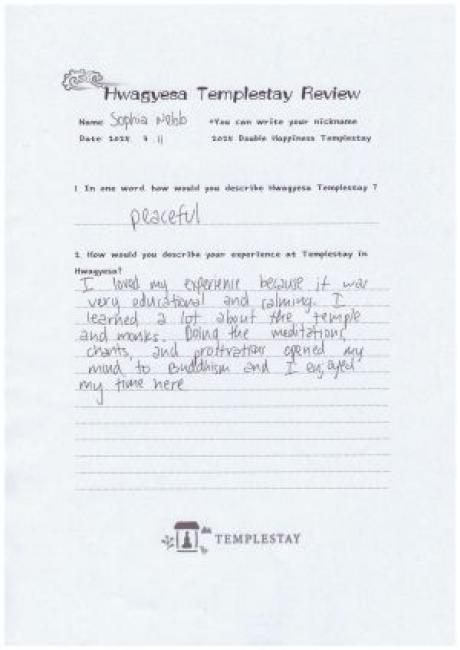 Hwagyesa Templestay Review
Name Sophia Webb *You can write your nickname
Date 2025 9 11 2025 Double Happiness Templestay
1 In one word, how would you describe Hwagyesa Templestay ?
peaceful
2. How would you describe your experience at Templestay in
Hwagyesa?
I loved my experience because it was
very educational and calming. I
learned a lot about the temple
and monks. Doing the meditations,
chants, and prostrations opened my
mind to Buddhism and I enjoyed
my time here
TEMPLESTAY